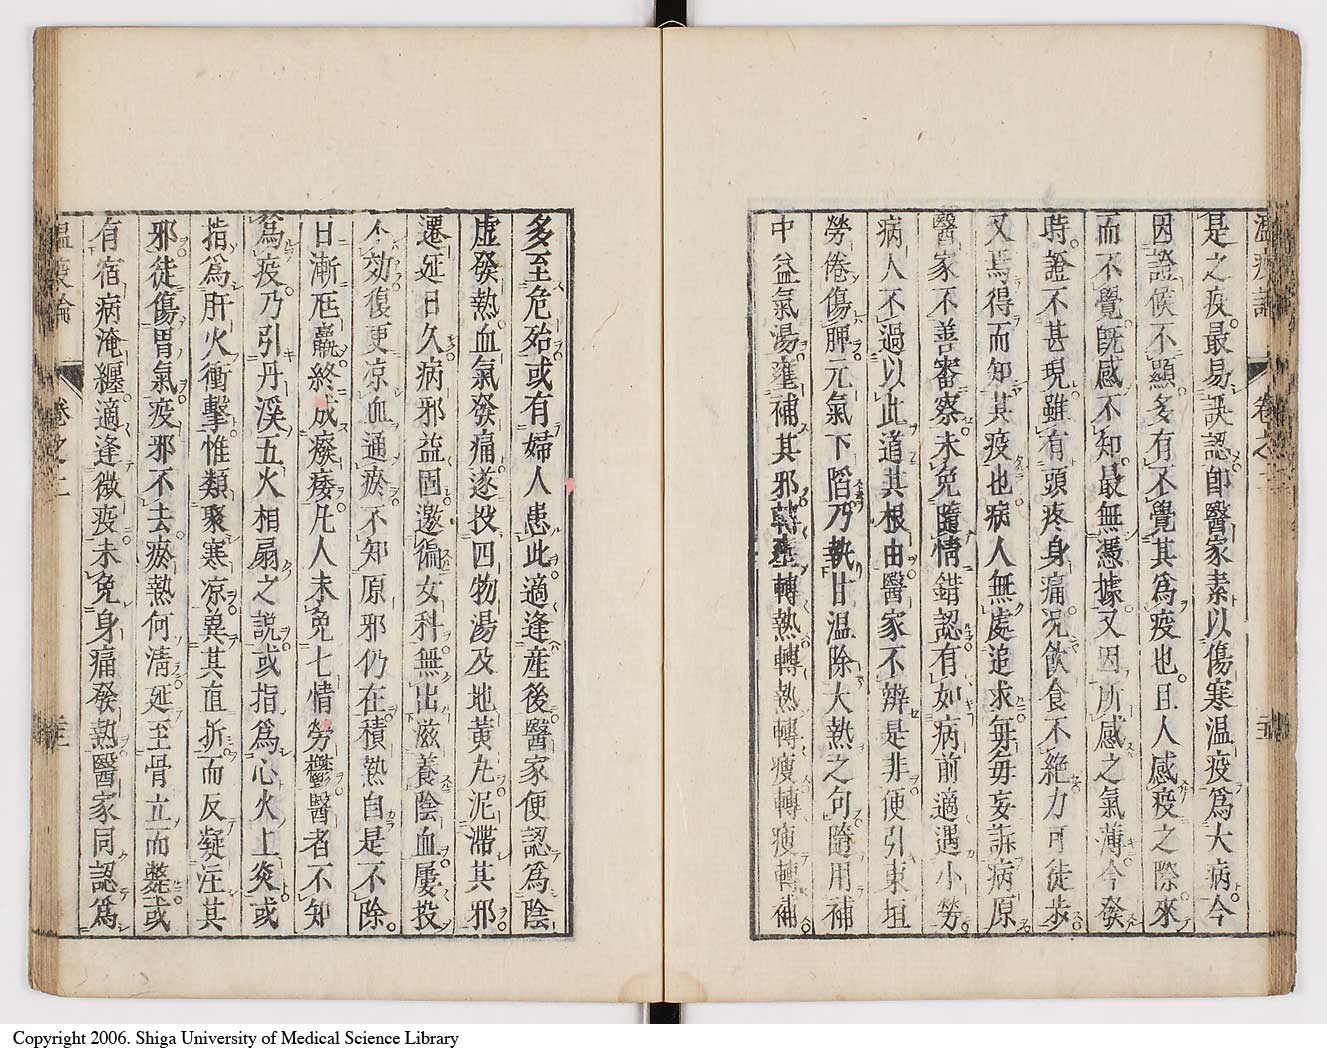 溫疫論 卷之二
是之疫最易誤認即醫家素以傷寒溫疫爲大病今
因證候不顯多有不覺其爲疫也且人感疫之際來
而不覺旣感不知最無憑據又因所感之氣薄今發
時證不甚現雖有頭疼身痛況飲食不絶力可徒步
又焉得而知其疫也病人無處追求每每妄訴病原
醫家不善審察未免隨情錯認有如病前適遇小勞
病人不過以此道其根由醫家不辨是非便引東垣
勞倦傷脾元氣下陷乃執甘温除大熱之句隨用補
中益氣湯壅補其邪轉壅轉熱轉熱轉瘦轉瘦轉補
多至危殆或有婦人患此適逢産後醫家便認爲陰
虚發熱血氣發痛遂投四物湯及地黄丸泥滯其邪
遷延日久病邪益固邀徧女科無出滋養陰血屢投
不効復更凉血通瘀不知原邪仍在積熱自是不除
日漸尫羸終成癈痿凡人未免七情勞鬱醫者不知
爲疫乃引丹溪五火相扇之説或指爲心火上炎或
指爲肝火衝擊惟類聚寒凉冀其直折而反凝注其
邪徒傷胃氣疫邪不去瘀熱何清延至骨立而斃或
有宿病淹纏適逢微疫未免身痛發熱醫家同認爲
溫疫論 卷之二
Copyright 2006. Shiga University of Medical Science Library